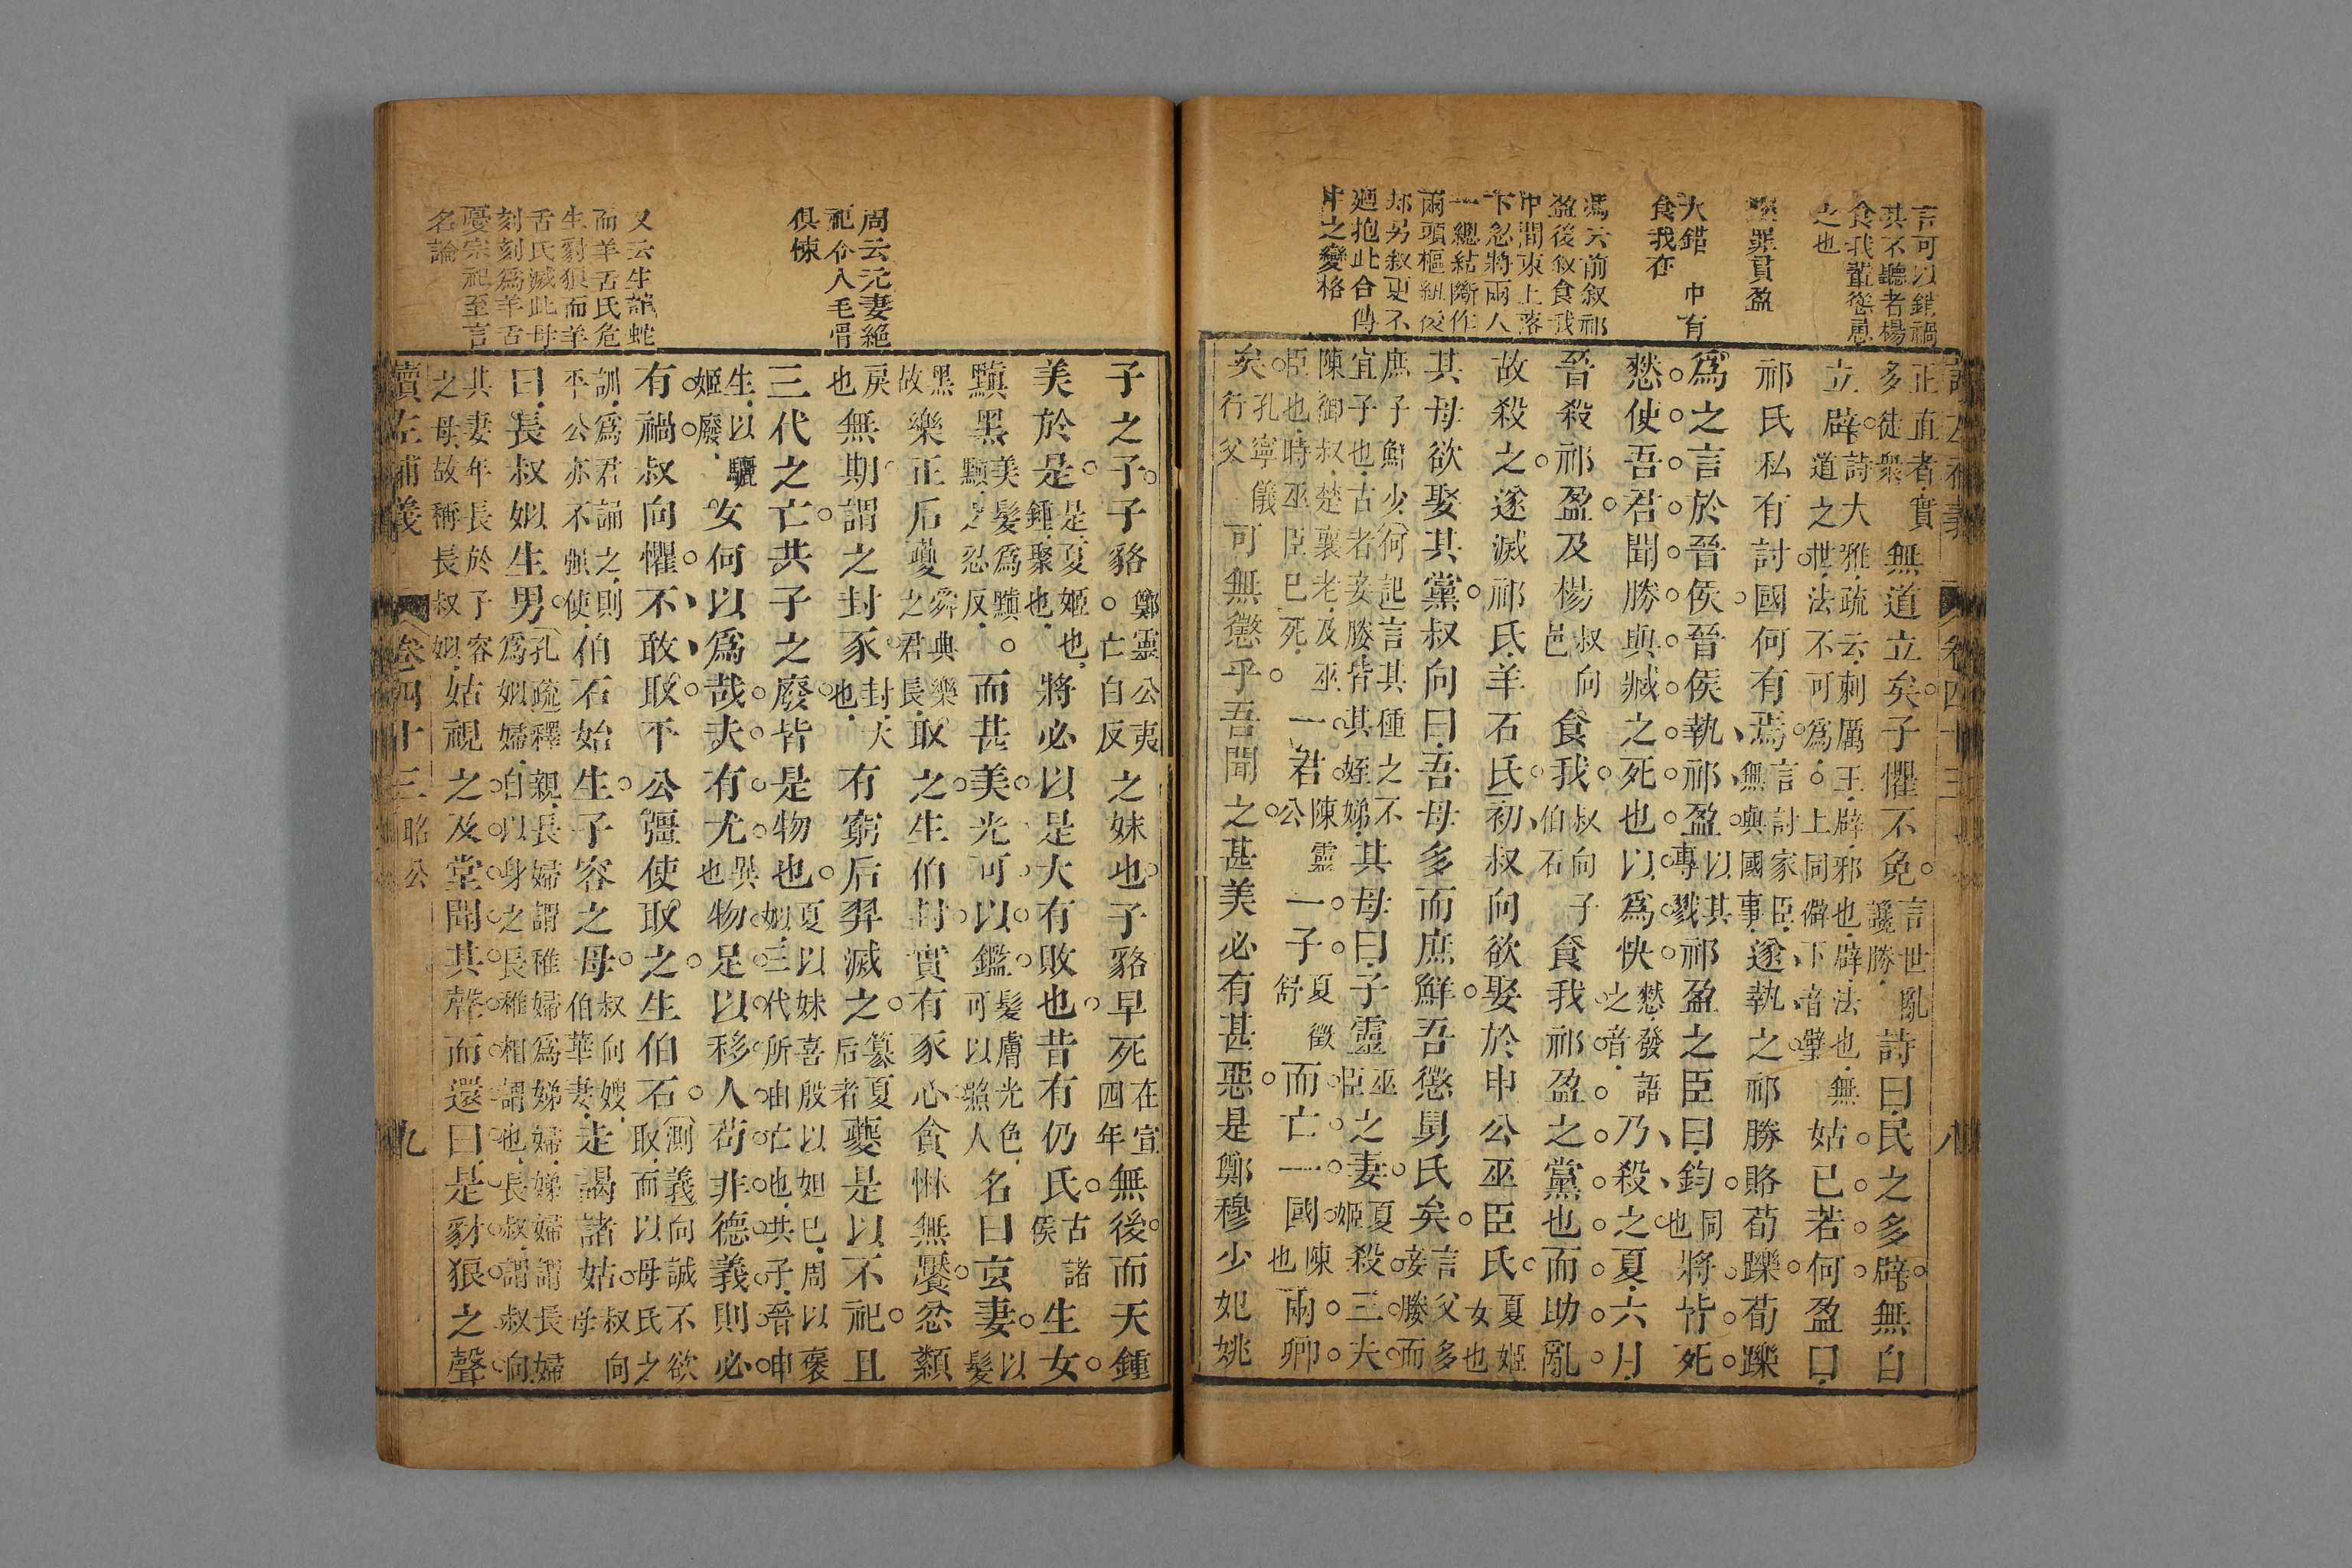 言可以銷禍
其不聽者楊
食我輩慫恿
之也
罪貫盈
大錯 中有
食我在
馮云前叙祁
盈後叙食我
中間束上落
下忽將兩人
一總結斷作
兩頭樞紐後
却另叙更不
廻抱此合傳
中之變格
讀左補義 卷四十三 八
正直者實多徒衆無道立矣子懼不免言世亂讒勝詩曰民之多辟無自
立辟詩大雅疏云刺厲王辟邪也辟法也無道之世法不可為上同僻下音璧姑已若何盈曰
祁氏私有討國何有焉言討家臣無與國事遂執之祁勝賂荀躒荀躒
爲之言於晉侯晉侯執祁盈以其專戮祁盈之臣曰鈞同也將皆死
憖使吾君聞勝與臧之死也以爲快憖發語之音乃殺之夏六月
晉殺祁盈及楊叔向邑食我叔向子伯石食我祁盈之黨也而助亂
故殺之遂滅祁氏羊石氏初叔向欲娶於申公巫臣氏夏姬女也
其母欲娶其黨叔向曰吾母多而庶鮮吾懲舅氏矣言父多妾媵而
庶子鮮少何起言其種之不宜子也古者妾媵皆其姪娣其母曰子靈巫臣之妻夏姬殺三夫
陳御叔楚襄老及巫臣也時巫臣巳死一君陳靈公一子夏徵舒而亡一國陳也兩卿
矣孔寧儀行父可無懲乎吾聞之甚美必有甚惡是鄭穆少妃姚
周云元妻絶
祀令人毛骨
俱悚
又云生龍蛇
而羊舌氏危
生豺狼而羊
舌氏滅此母
刻刻爲羊舌
憂宗祀至言
名論
子之子子貉鄭靈公夷亡白反之妹也子貉早死在宣四年無後而天鍾
美於是是夏姬也鍾聚也將必以是大有敗也昔有仍氏古諸侯生女
黰黑美髮爲黰黰之忍反而甚美光可以鑑髮膚光色可以照人名曰玄妻以髮
黑故樂正后夔舜典樂之君長取之生伯封實有豕心貪惏無饜忿纇
戾也無期謂之封豕封大也有窮后羿滅之簒夏后者夔是以不祀且
三代之亡共子之廢皆是物也夏以妹喜殷以妲巳周以褒姒三代所由亡也共子晉申
生以驪姬廢女何以爲哉夫有尤異也物足以移人苟非德義則必
有禍叔向懼不敢取平公彊使取之生伯石測義向誠不欲取而以母氏之
訓爲君誦之則平公亦不強使伯石始生子容之母叔向嫂伯華妻走謁諸姑叔向母
曰長叔姒生男孔疏釋親長婦謂稚婦爲娣婦娣婦謂長婦爲姒婦自以身之長稚相謂也長叔謂叔向
其妻年長於子容之母故稱長叔姒姑視之及堂聞其聲而還曰是豺狼之聲
讀左補義 卷四十三 昭公 九